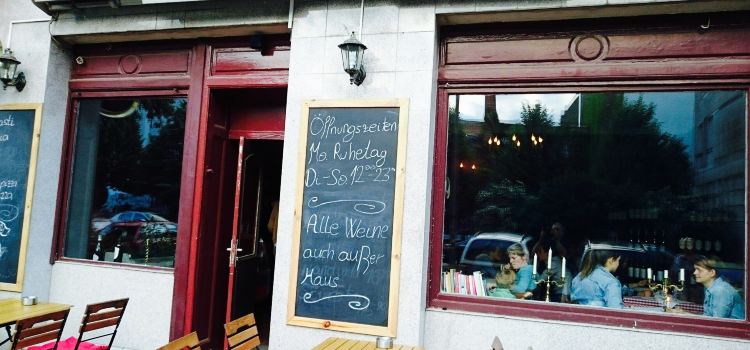 Öffnungszeiten
Mo. Ruhetag
Di-So. 12⁰⁰-23⁰⁰
Alle Weine
auch außer
Haus